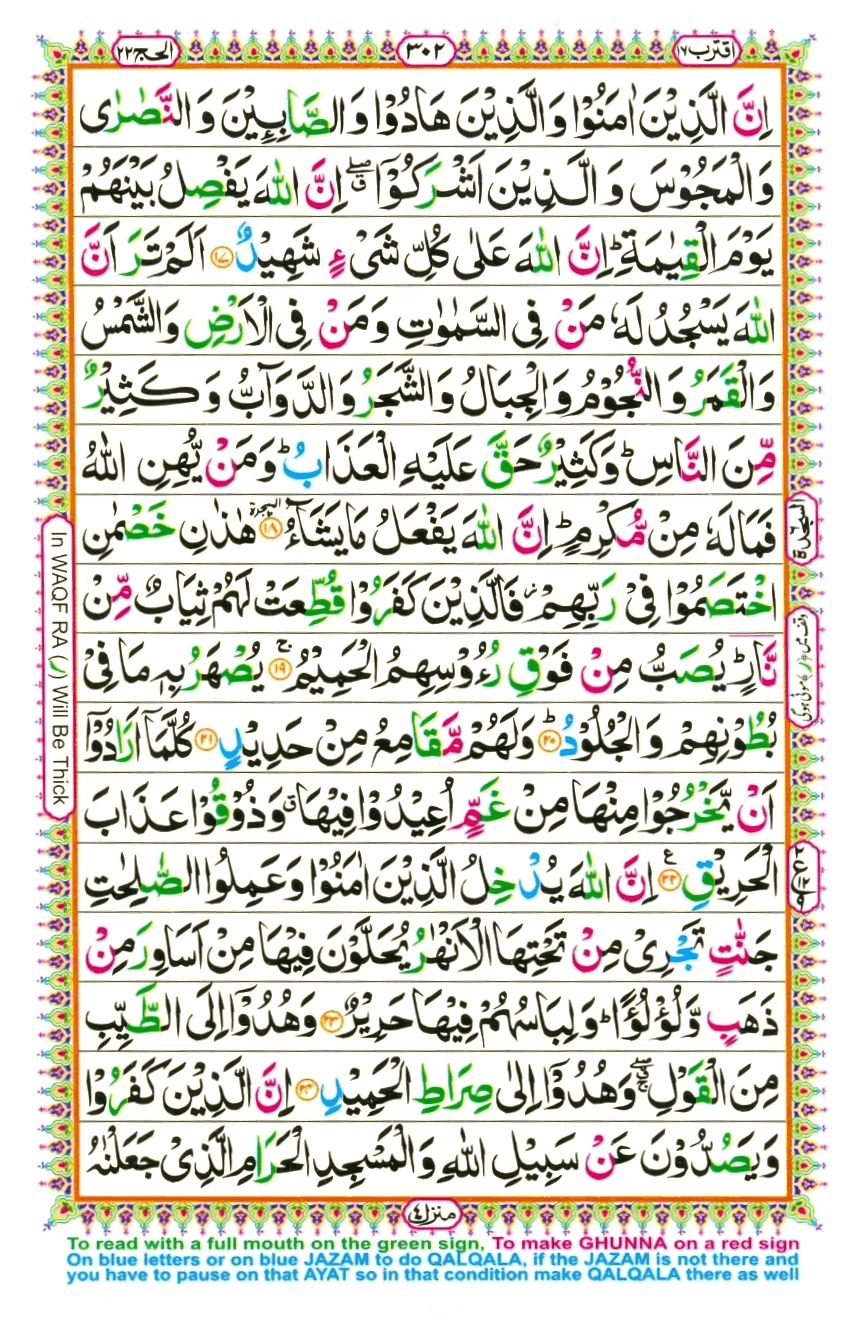 اقترب ۱۷
۳۰۲
الحج ۲۲
اِنَّ الَّذِیْنَ اٰمَنُوْا وَالَّذِیْنَ هَادُوْا وَالصَّابِـِٕیْنَ وَالنَّصٰرٰی
وَالْمَجُوْسَ وَالَّذِیْنَ اَشْرَكُوْۤا ۖۗ اِنَّ اللّٰهَ یَفْصِلُ بَیْنَهُمْ
یَوْمَ الْقِیٰمَةِ ؕ اِنَّ اللّٰهَ عَلٰی كُلِّ شَیْءٍ شَهِیْدٌ ۝۱۷ اَلَمْ تَرَ اَنَّ
اللّٰهَ یَسْجُدُ لَهٗ مَنْ فِی السَّمٰوٰتِ وَمَنْ فِی الْاَرْضِ وَالشَّمْسُ
وَالْقَمَرُ وَالنُّجُوْمُ وَالْجِبَالُ وَالشَّجَرُ وَالدَّوَآبُّ وَكَثِیْرٌ
مِّنَ النَّاسِ ؕ وَكَثِیْرٌ حَقَّ عَلَیْهِ الْعَذَابُ ؕ وَمَنْ یُّهِنِ اللّٰهُ
فَمَا لَهٗ مِنْ مُّكْرِمٍ ؕ اِنَّ اللّٰهَ یَفْعَلُ مَا یَشَآءُ ۝۱۸ السجدة هٰذٰنِ خَصْمٰنِ
اخْتَصَمُوْا فِیْ رَبِّهِمْ ؗ فَالَّذِیْنَ كَفَرُوْا قُطِّعَتْ لَهُمْ ثِیَابٌ مِّنْ
نَّارٍ ؕ یُصَبُّ مِنْ فَوْقِ رُءُوْسِهِمُ الْحَمِیْمُ ۝۱۹ ۚ یُصْهَرُ بِهٖ مَا فِیْ
بُطُوْنِهِمْ وَالْجُلُوْدُ ۝۲۰ ؕ وَلَهُمْ مَّقَامِعُ مِنْ حَدِیْدٍ ۝۲۱ كُلَّمَاۤ اَرَادُوْۤا
اَنْ یَّخْرُجُوْا مِنْهَا مِنْ غَمٍّ اُعِیْدُوْا فِیْهَا ۗ وَذُوْقُوْا عَذَابَ
الْحَرِیْقِ ۝۲۲ ع اِنَّ اللّٰهَ یُدْخِلُ الَّذِیْنَ اٰمَنُوْا وَعَمِلُوا الصّٰلِحٰتِ
جَنّٰتٍ تَجْرِیْ مِنْ تَحْتِهَا الْاَنْهٰرُ یُحَلَّوْنَ فِیْهَا مِنْ اَسَاوِرَ مِنْ
ذَهَبٍ وَّلُؤْلُؤًا ؕ وَلِبَاسُهُمْ فِیْهَا حَرِیْرٌ ۝۲۳ وَهُدُوْۤا اِلَی الطَّیِّبِ
مِنَ الْقَوْلِ ۖۚ وَهُدُوْۤا اِلٰی صِرَاطِ الْحَمِیْدِ ۝۲۴ اِنَّ الَّذِیْنَ كَفَرُوْا
وَیَصُدُّوْنَ عَنْ سَبِیْلِ اللّٰهِ وَالْمَسْجِدِ الْحَرَامِ الَّذِیْ جَعَلْنٰهُ
السجدة
وقف میں (ر) موٹی ہوگی
In WAQF RA (ر) Will Be Thick
منزل ٤
To read with a full mouth on the green sign, To make GHUNNA on a red sign
On blue letters or on blue JAZAM to do QALQALA, if the JAZAM is not there and
you have to pause on that AYAT so in that condition make QALQALA there as well